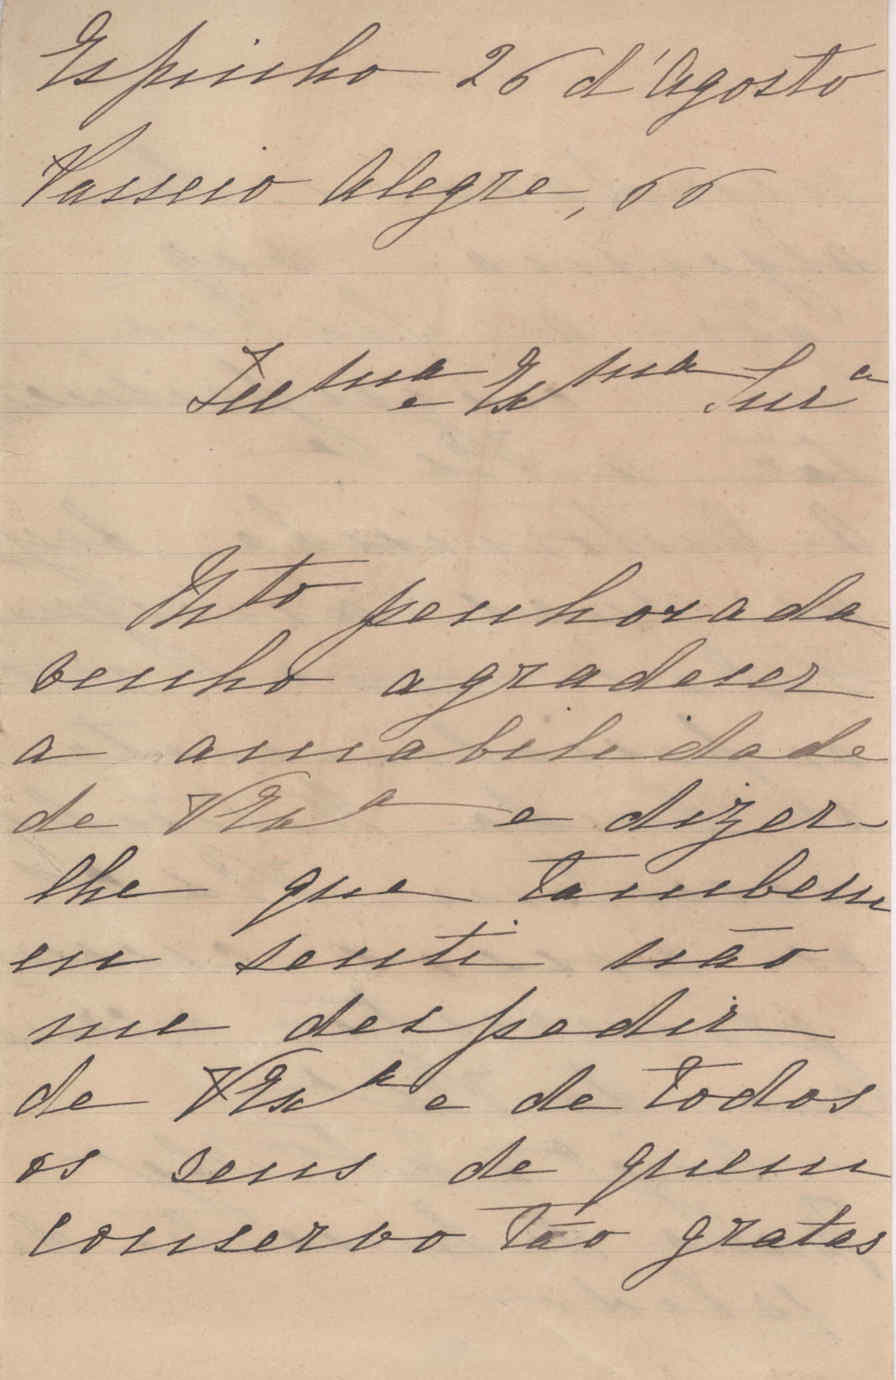 Espinho 26 d'Agosto
Passeio Alegre, 66
Illma e Exma Snra
Mto penhorada
venho agradecer
a amabilidade
de VExa e dizer-
lhe que tambem
eu senti não
me despedir
de VExa e de todos
os seus de quem
conservo tão gratas